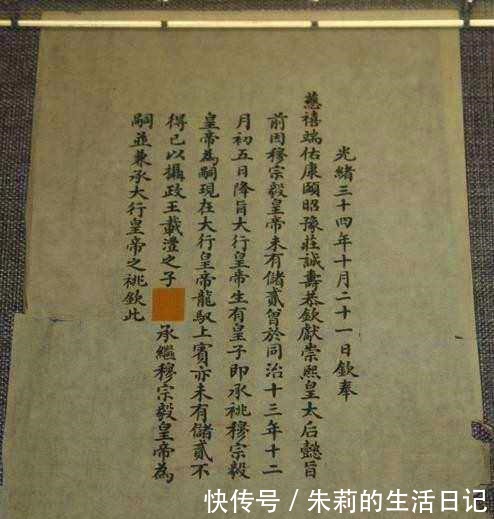 光緒三十四年十月二十一日欽奉
慈禧端佑康頤昭豫莊誠壽恭欽獻崇熙皇太后懿旨
前因穆宗毅皇帝未有儲貳曾於同治十三年十二
月初五日降旨大行皇帝生有皇子即承祧穆宗毅
皇帝為嗣現在大行皇帝龍馭上賓亦未有儲貳不
得已以攝政王載灃之子 承繼穆宗毅皇帝為
嗣並兼承大行皇帝之祧欽此
快传号 / 朱莉的生活日记